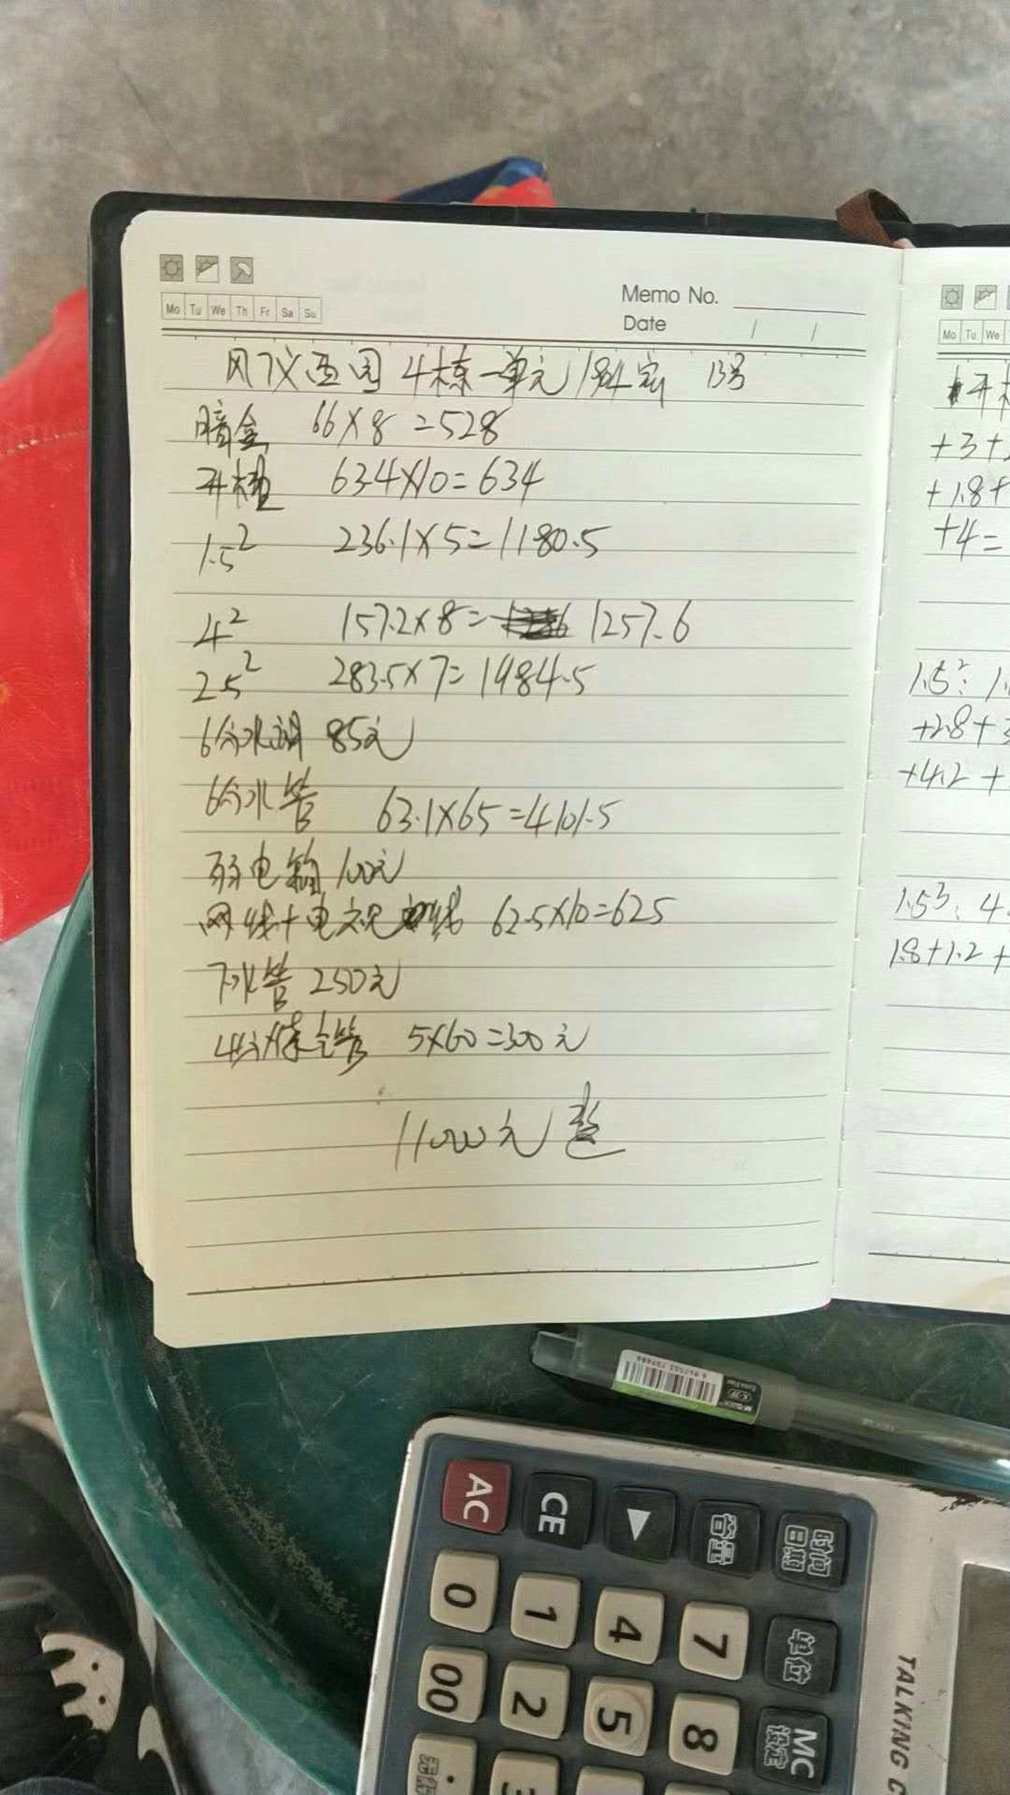 Memo No.
Mo Tu We Th Fr Sa Su
Date / /
4栋一单元 184室 B号
暗盒 66×8=528
开槽 63.4×10=634
1.5² 236.1×5=1180.5
4² 157.2×8= 1257.6
2.5² 283.5×7=1984.5
6分水阀 85元
6分水管 63.1×65=4101.5
弱电箱 100元
网线+电视线 62.5×10=625
下水管 250元
4分煤气管 5×60=300元
11000元整
Mo Tu We
开槽
+3+
+1.8+
+4=
1.5²: 1.
+2.8+3
+4.2+
1.5³: 4.
1.8+1.2+
AC CE ▶ 音量 时间 日期
0 1 4 7 单位
00 2 5 8 MC 设定
TALKING C